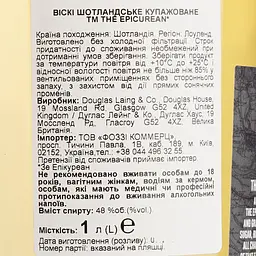 ВІСКІ ШОТЛАНДСЬКЕ КУПАЖОВАНЕ
ТМ THE EPICUREAN*
Країна походження: Шотландія. Регіон Лоуленд.
Виготовлено без холодної фільтрації. Строк
придатності до споживання необмежений при
дотриманні умов зберігання. Зберігати продукт
за температури від +10°С до +25°С і
відносної вологості повітря не більше ніж 85% у
вентильованих приміщеннях без стороннього
запаху, з захистом від дії прямих сонячних
променів.
Виробник: Douglas Laing & Co., Douglas House,
19 Mossland Rd, Glasgow G52 4XZ, United
Kingdom / Дуглас Лейн / Дуглас Хаус, 19
Моссленд Рд, Глазгоу G52 4XZ, Велика
Британія.
Імпортер: ТОВ «ФОЗЗІ КОММЕРЦ»,
просп. Тичини Павла, 1В, каб. 389, м. Київ,
02152, Україна, +38 044 496 32 55.
Претензії від споживачів приймає імпортер.
*Зе Епікуреан
Не рекомендовано вживати особам до 18
років, вагітним жінкам, водіям за кермом,
особам, які мають медичні чи професійні
протипоказання до вживання алкогольних
напоїв.
Вміст спирту: 48 %об.(%vol.)
Місткість: 1 л (L) ℮
Дата виготовлення (розливу):
Номер партії: вказаний на пляшці.